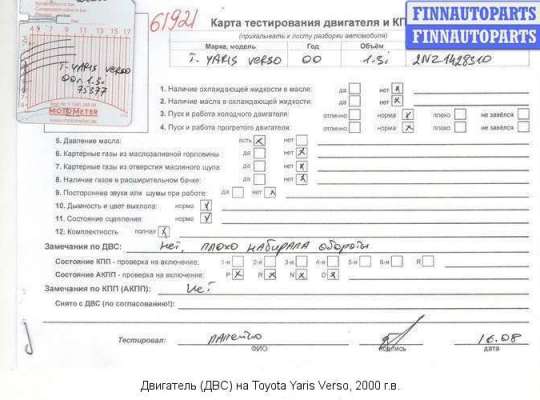 61921
Карта тестирования двигателя и КП
FINNAUTOPARTS
FINNAUTOPARTS
(прикалывать к листу разборки автомобиля)
Марка, модель Год Объём
T. YARIS VERSO 00 1.3i 2NZ1428310
T. YARIS VERSO
00г. 1.3i
75377
MOTOMETER
1. Наличие охлаждающей жидкости в масле: да нет
2. Наличие масла в охлаждающей жидкости: да нет
3. Пуск и работа холодного двигателя: отлично норма плохо не завёлся
4. Пуск и работа прогретого двигателя: отлично норма плохо не завёлся
5. Давление масла: есть нет
6. Картерные газы из маслозаливной горловины да нет
7. Картерные газы из отверстия масляного щупа: да нет
8. Наличие газов в расширительном бачке: да нет
9. Посторонние звуки или шумы при работе: да нет
10. Дымность и цвет выхлопа: норма
11. Состояние сцепления: норма
12. Комплектность полная
Замечания по ДВС: Нет, плохо набирала обороты
Состояние КПП - проверка на включение: 1-я 2-я 3-я 4-я 5-я 6-я R
Состояние АКПП - проверка на включение: P R N D
Замечания по КПП (АКПП): Нет
Снято с ДВС (по согласованию!):
Тестировал: 16.08
ФИО подпись дата
Двигатель (ДВС) на Toyota Yaris Verso, 2000 г.в.